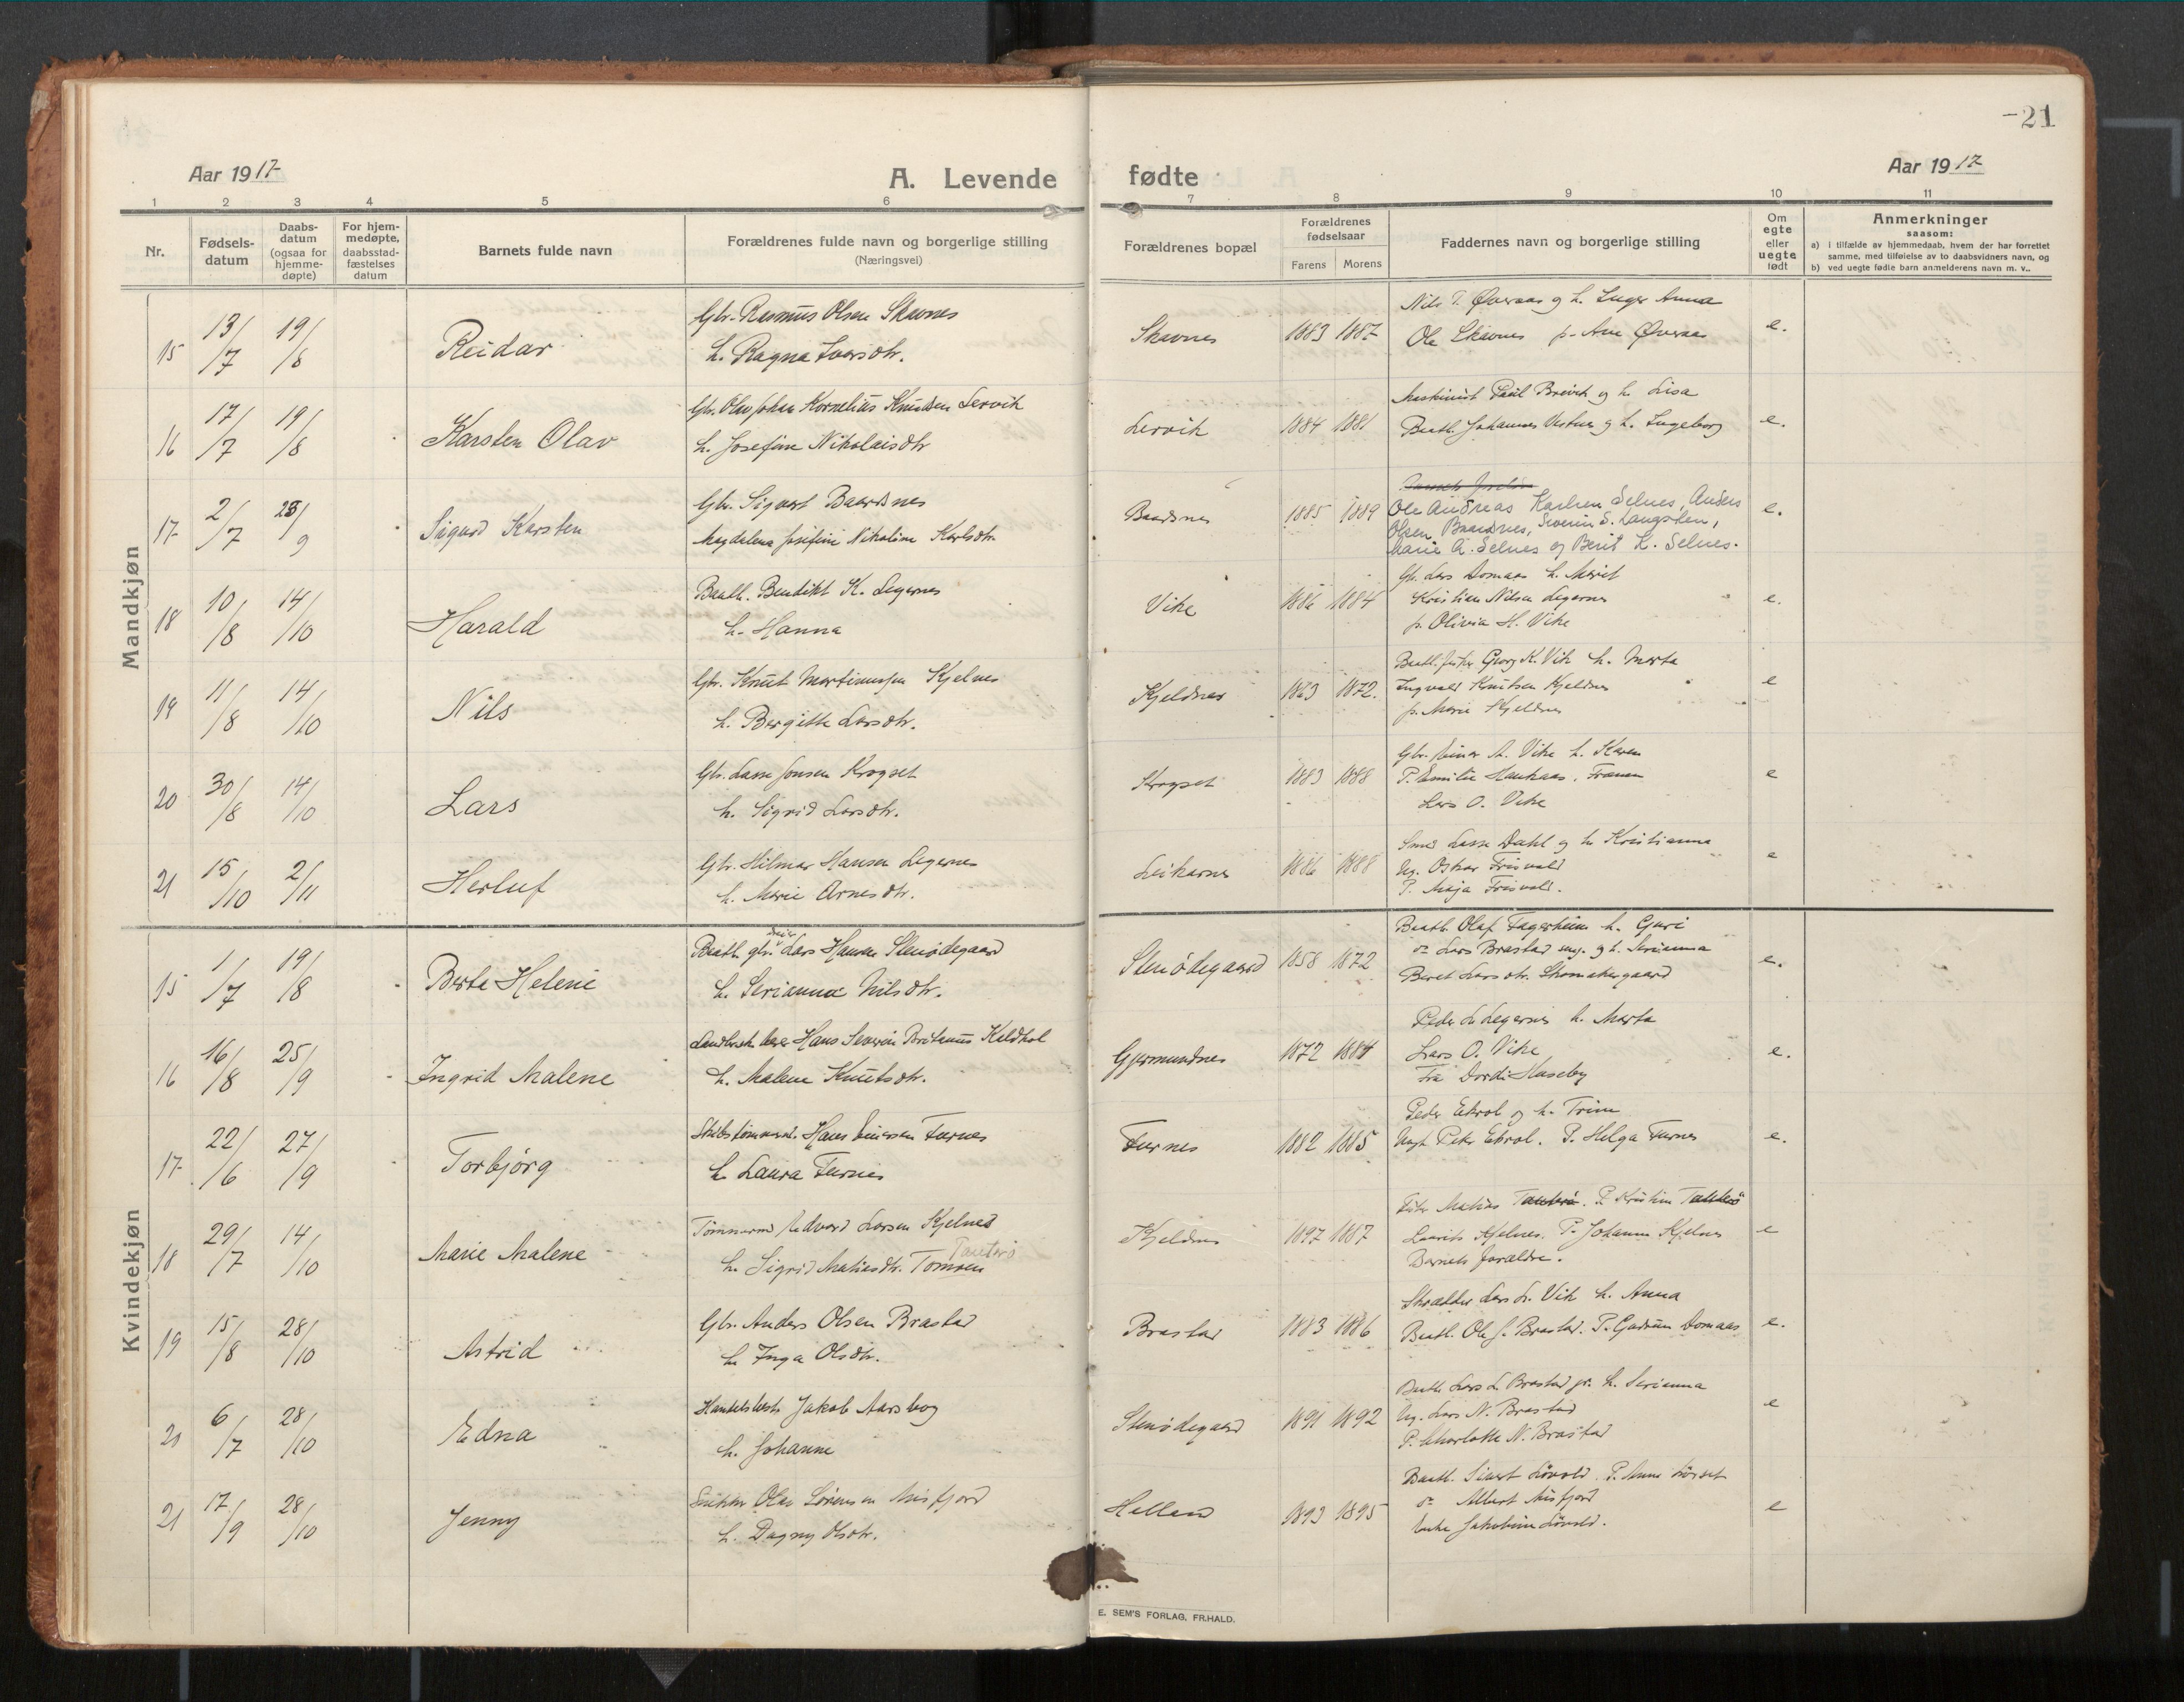 -21
Aar 1917
A. Levende
fødte
Aar 1917
1 2 3 4 5 6 7 8 9 10 11
Nr.
Fødsels-datum
Daabs-datum (ogsaa for hjemme-døpte)
For hjem-medøpte, daabsstad-fæstelses datum
Barnets fulde navn
Forældrenes fulde navn og borgerlige stilling
(Næringsvei)
Forældrenes bopæl
Forældrenes fødselsaar
Farens Morens
Faddernes navn og borgerlige stilling
Om egte eller uegte født
Anmerkninger
saasom:
a) i tilfælde av hjemmedaab, hvem der har forrettet
samme, med tilføielse av to daabsvidners navn, og
b) ved uegte fødte barn anmelderens navn m. v..
Mandkjøn
15 13/7 19/8 Reidar
Gbr. Rasmus Olsen Skavnes
h. Ragna Iversdtr.
Skavnes 1883 1887
Nils T. Øveraas og h. Inger Anna
Ole Skavnes p. Ane Øveraas
e.
16 17/7 19/8 Karsten Olav
Gbr. Olav Johan Kornelius Knudsen Lervik
h. Josefine Nikolaisdtr
Lervik 1884 1881
Maskinist Paul Breivik og h. Lisa
Baatb. Johannes Vestnes og h. Ingeborg
e.
17 2/7 23/9 Sigurd Karsten
Gbr. Sigvart Baardsnes
Magdalena Josefine Nikoline Karlsdtr.
Baardsnes 1885 1889
Ole Andreas Karlsen Selnes, Anders
Olsen Baardsnes, Severin S. Langsten,
Marie A. Selnes og Berit K. Selnes.
e.
18 10/8 14/10 Harald
Baatb. Bendikt K. Legernes
h. Hanna
Vike 1886 1884
Gb. Lars Domaas h. Marit
Kristian Nilsen Legernes
p. Olivia H. Vike
e.
19 11/8 14/10 Nils
Gbr. Knut Martinussen Kjelnes
h. Bergitte Larsdtr.
Kjeldnes 1863 1872.
Georg K. Vik h. Marta
Ingvald Knutsen Kjeldnes
p. Marie Kjeldnes
e
20 30/8 14/10 Lars
Gbr. Lasse Jonsen Krogset
h. Sigrid Larsdtr.
Krogset 1883 1888
Gbr. Einar A. Vike h. Karen
P. Emilie Haukaas,
Lars O. Vike
e
21 15/10 2/11 Herluf
Gbr. Hilmar Hansen Legernes
h. Marie Arnesdtr.
Leikarnes 1886 1888
Smed Lasse Dahl og h. Kristianna
Ug. Oskar Frisvold
P. Maja Frisvold.
e
Kvindekjøn
15 1/7 19/8 Berte Helene
Baatb. gbr. Lars Hansen Stenødegaard
h. Serianna Nilsdtr.
Stenødegaard 1858 1872
Baatb. Olaf Fagerheim h. Guri
do Lars Brastad ung. og h. Serianna
Beret Larsdtr. Skomakergaard
e.
16 16/8 25/9 Ingrid Malene
Hans Severin Keldhol
h. Malene Knutsdtr.
Gjermundnes 1872 1884
Peder L. Legernes h. Marta
Lars O. Vike
Fru Dordi Huseby
e.
17 22/6 27/9 Torbjørg
Skibstømmerm. Hans Furnes
h. Laura Furnes
Furnes 1882 1885
Peder Ekrol og h. Trine
Ungk. Peter Ekrol. P. Helga Furnes
e.
18 29/7 14/10 Marie Malene
Tømmerm Edvard Larsen Kjelnes
h. Sigrid Matiasdtr. Tomren Tauterø
Kjeldnes 1897 1887
Matias Tauterø. P. Kristine Tauterø
Laurits Kjelnes. P. Johanne Kjelnes
Barnets forældre.
e
19 15/8 28/10 Astrid
Gbr. Anders Olsen Brastad
h. Inga Olsdtr.
Brastad 1883 1886
Skrædder Lars L. Vik h. Anna
Baatb. Ole J. Brastad. P. Gudrun Domaas
e.
20 6/7 28/10 Edna
Handelsbest. Jakob Aarsbog
h. Johanne
Stenødegaard 1891 1892
Baatb. Lars L. Brastad jr. h. Serianna
Ug. Lars N. Brastad
P. Charlotte N. Brastad
e
21 17/9 28/10 Jenny
Snekker Olav Sørensen Misfjord
h. Dagny Olsdtr.
Helland 1893 1895
Baatb. Sivert Løvold. P. Anne Lørset
do Albert Misfjord
Enke Jakobine Løvold.
e
E. SEM'S FORLAG, FR.HALD.